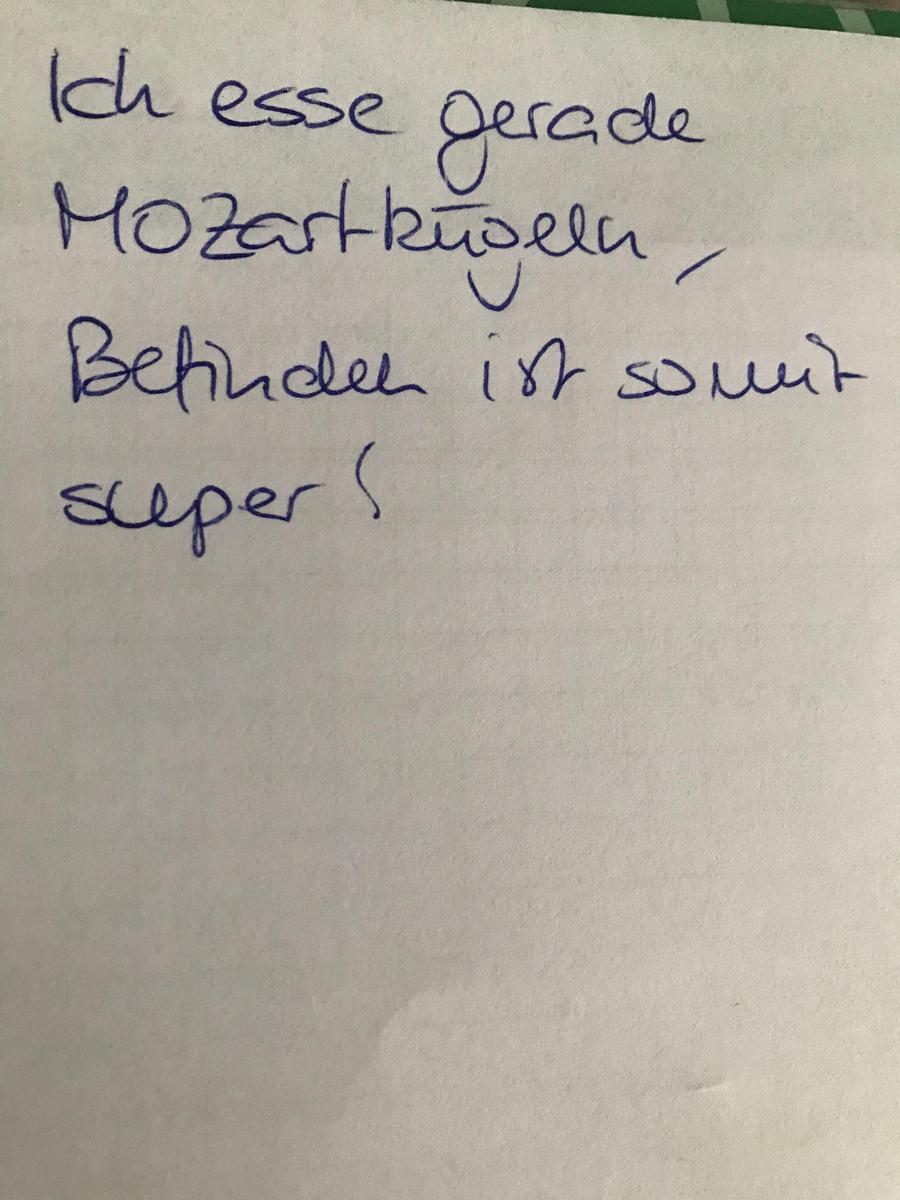 Ich esse gerade
Mozartkügeln,
Befinden ist somit
super!